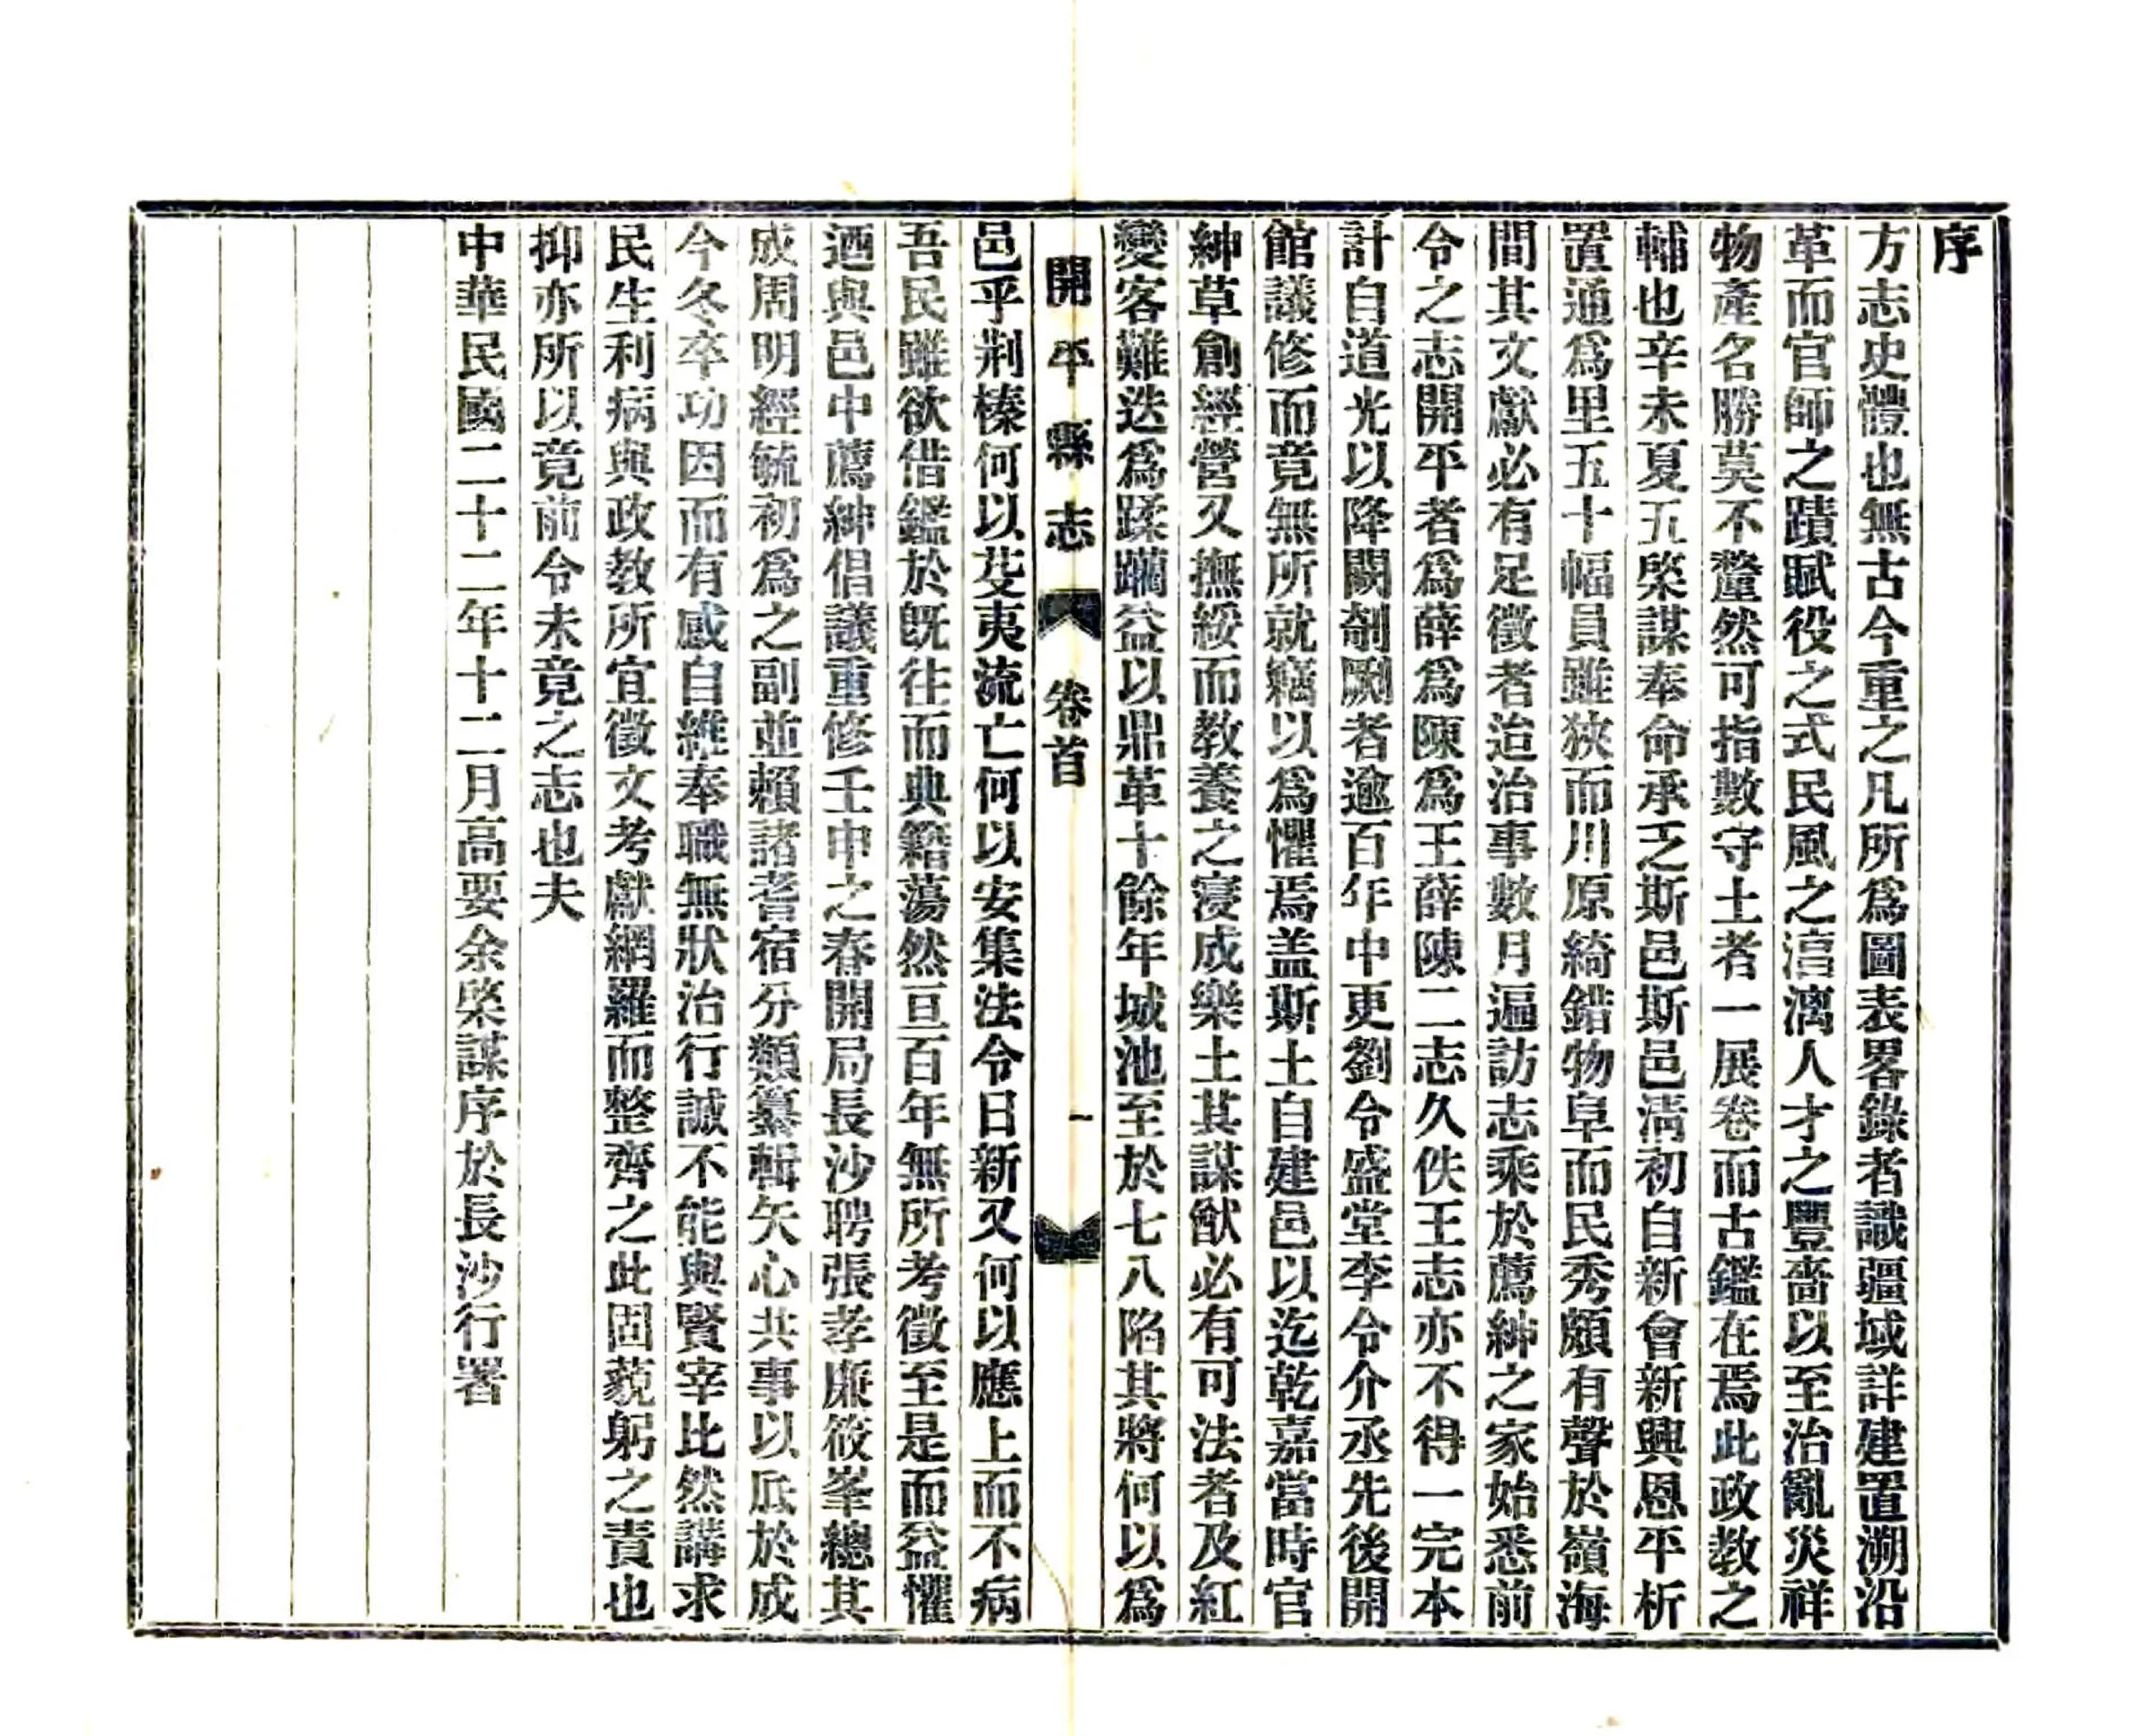 序
方志史體也無古今重之凡所爲圖表畧錄者識疆域詳建置溯沿
革而官師之蹟賦役之式民風之淳漓人才之豐嗇以至治亂災祥
物產名勝莫不釐然可指數守土者一展卷而古鑑在焉此政教之
輔也辛未夏五棨謀奉命承乏斯邑斯邑淸初自新會新興恩平析
置通爲里五十幅員雖狹而川原綺錯物阜而民秀頗有聲於嶺海
間其文獻必有足徵者迨治事數月遍訪志乘於薦紳之家始悉前
令之志開平者爲薛爲陳爲王薛陳二志久佚王志亦不得一完本
計自道光以降闕剞劂者逾百年中更劉令盛堂李令介丞先後開
館議修而竟無所就竊以爲懼焉盖斯土自建邑以迄乾嘉當時官
紳草創經營又撫綏而教養之寖成樂土其謀猷必有可法者及紅
變客難迭爲蹂躪益以鼎革十餘年城池至於七八陷其將何以爲
開平縣志 卷首 一
邑乎荆榛何以芟夷流亡何以安集法令日新又何以應上而不病
吾民雖欲借鑑於旣往而典籍蕩然亘百年無所考徵至是而益懼
迺與邑中薦紳倡議重修壬申之春開局長沙聘張孝廉筱峯總其
成周明經毓初爲之副並賴諸耆宿分類纂輯矢心共事以底於成
今冬卒功因而有感自維奉職無狀治行誠不能與賢宰比然講求
民生利病與政教所宜徵文考獻網羅而整齊之此固藐躬之責也
抑亦所以竟前令未竟之志也夫
中華民國二十二年十二月高要余棨謀序於長沙行署